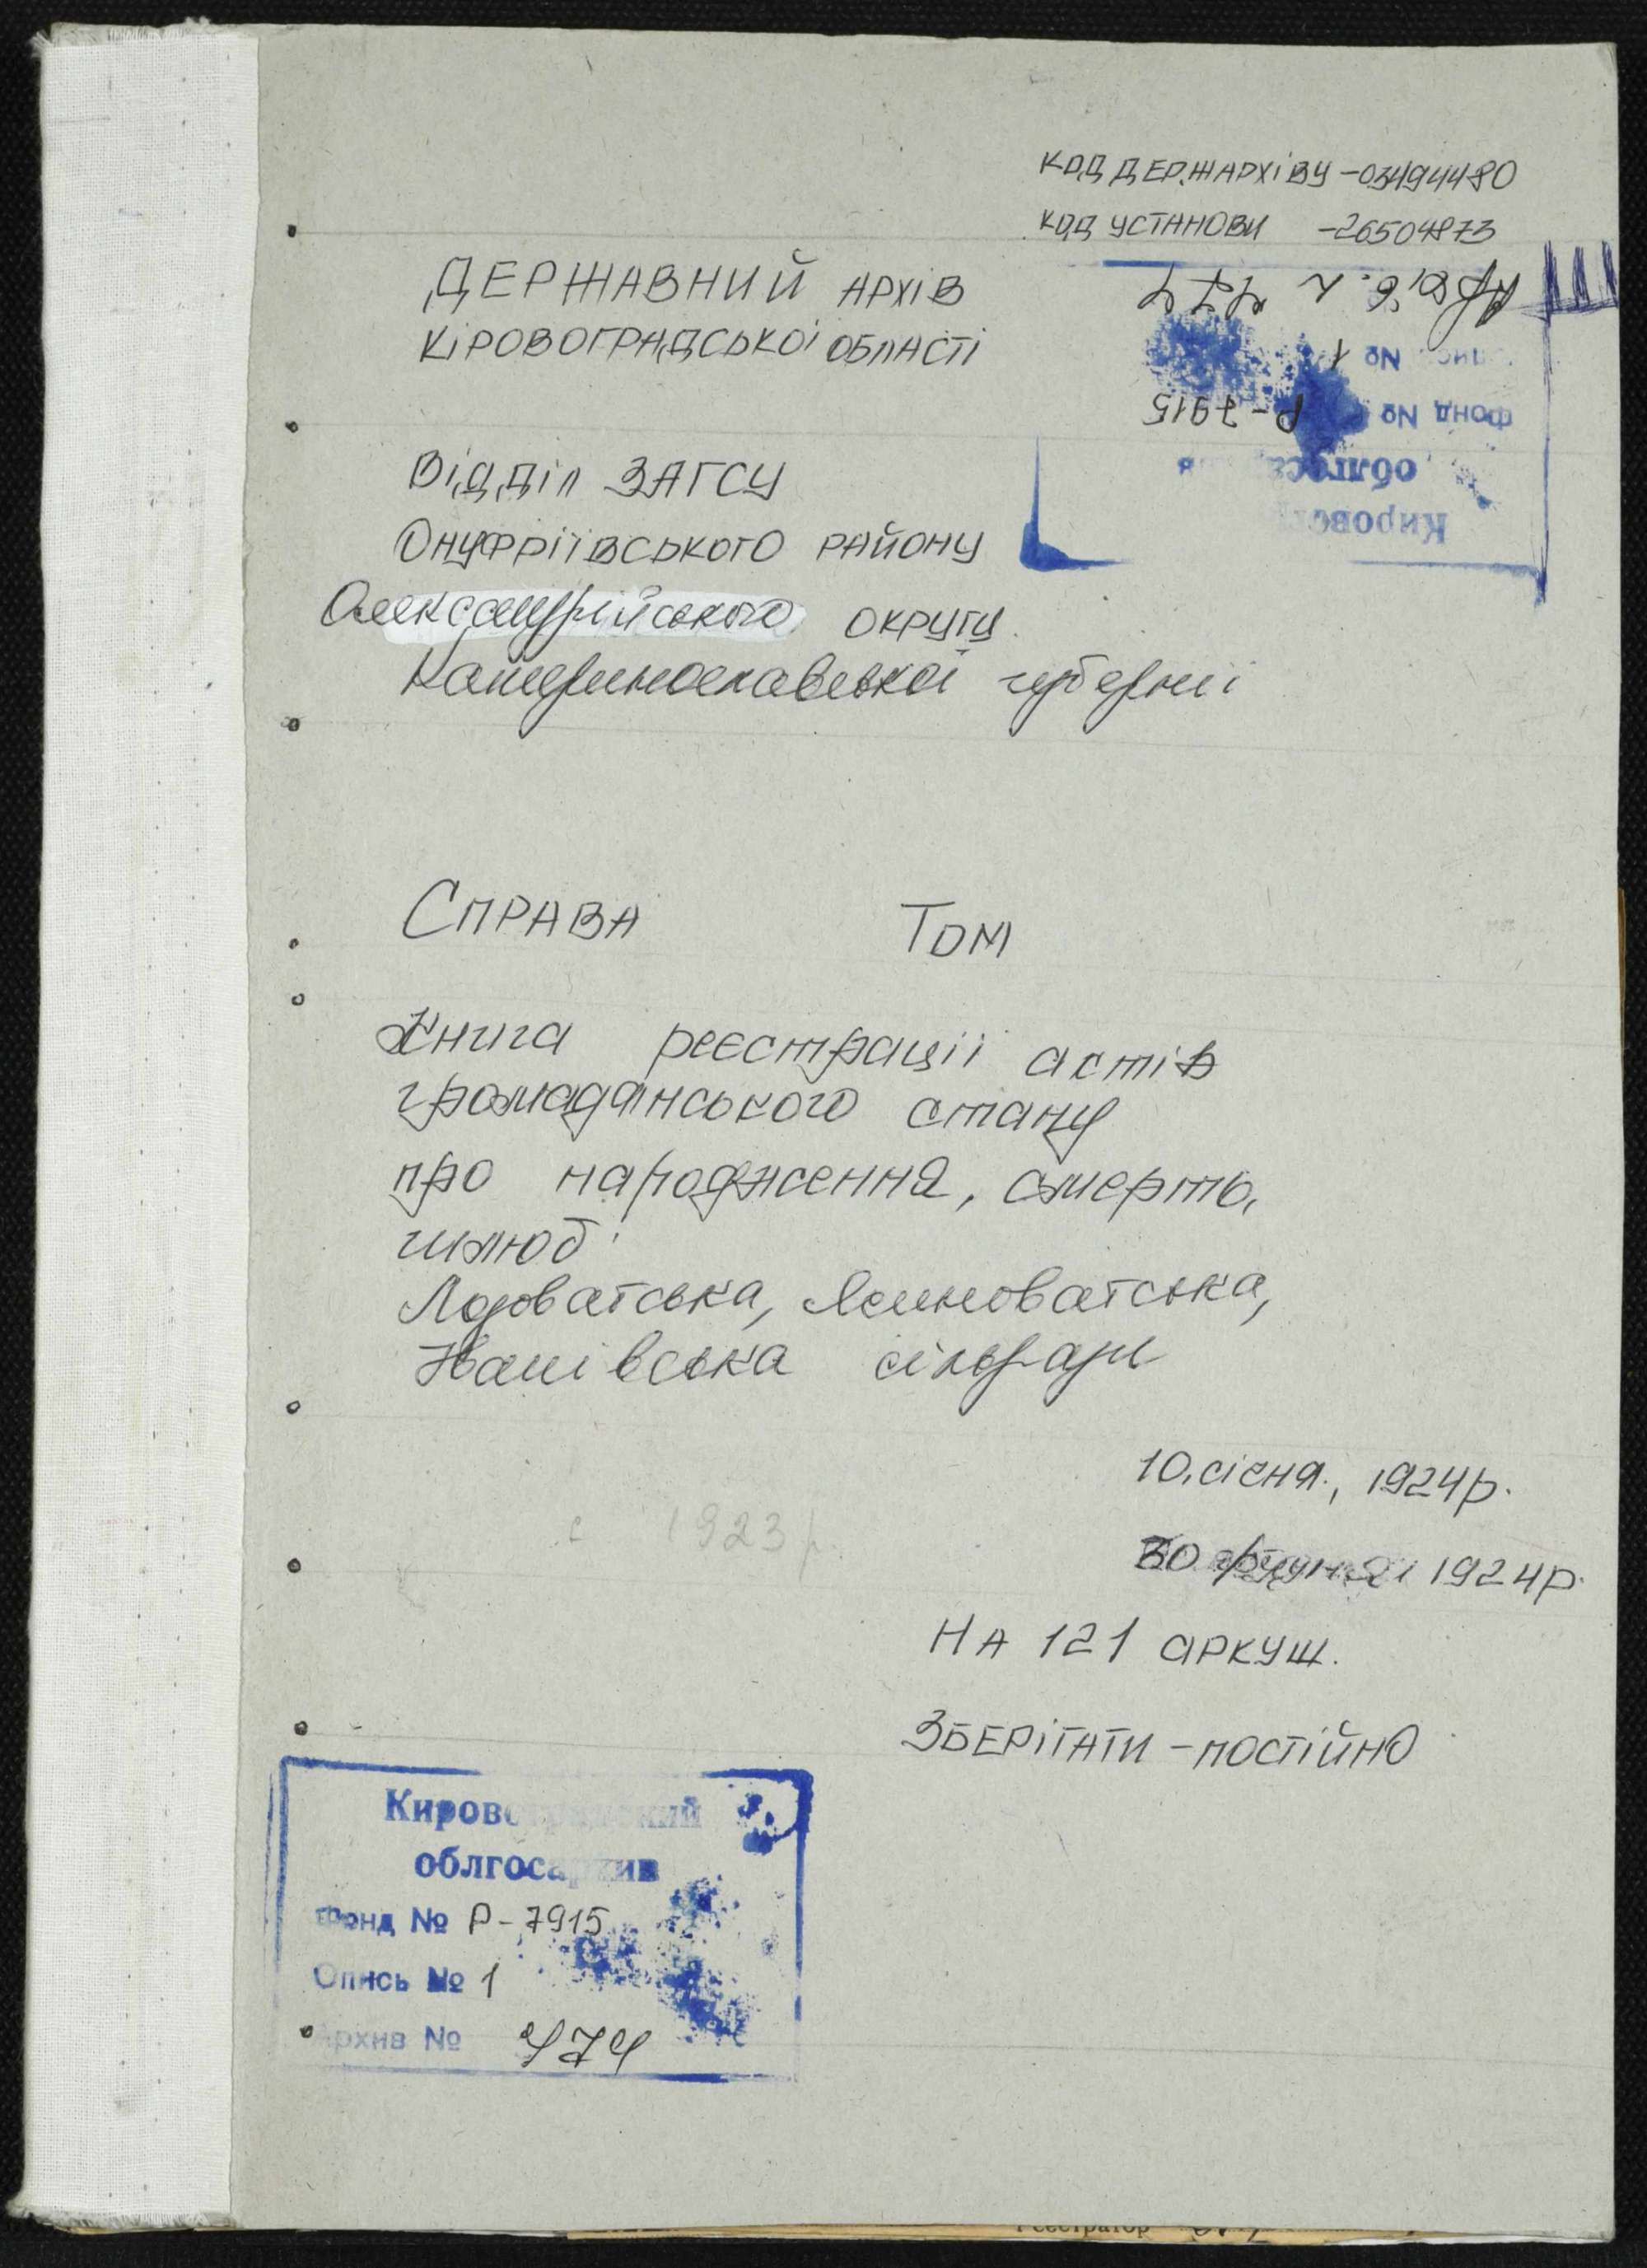 КОД ДЕРЖАРХІВУ -03494480
КОД УСТАНОВИ -26504873
ДЕРЖАВНИЙ АРХІВ
КІРОВОГРАДСЬКОЇ ОБЛАСТІ
Фонд № Р-7915
Відділ ЗАГСУ
Онуфріївського району
Олександрійського округу
Катеринославської губернії
СПРАВА ТОМ
Книга реєстрації актів
громадянського стану
про народження, смерть,
шлюб
Лозоватська, Ясиноватська,
Іванівська сільради
10 січня, 1924р.
30 грудня 1924р.
1923р
НА 121 аркуш.
ЗБЕРІГАТИ - ПОСТІЙНО
Кировоградский
облгосархив
Фонд № Р-7915
Опись № 1
Архив № 474
Реестратор